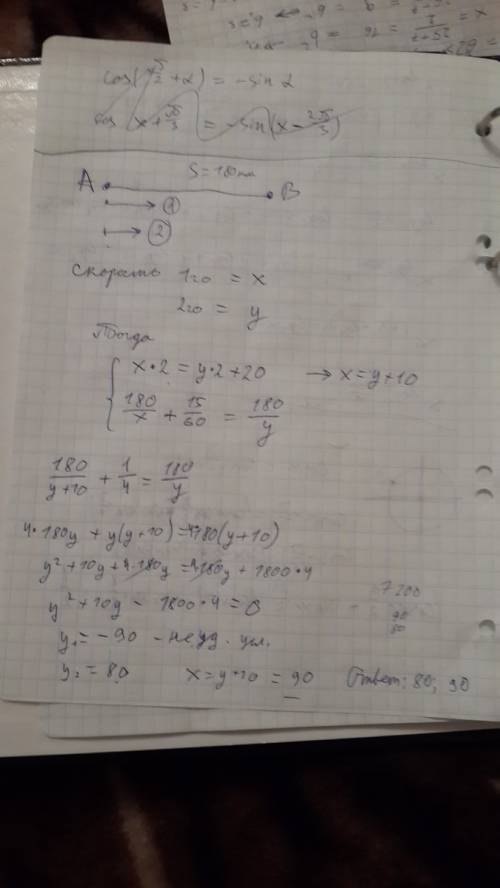 cos(π/2 + α) = -sin α
cos(x + π/3) = -sin(x - 2π/3)
S = 180 км
A B
1
2
Скорость 1го = x
2го = y
Тогда
x·2 = y·2 + 20 → x = y + 10
180/x + 15/60 = 180/y
180/(y+10) + 1/4 = 180/y
4·180y + y(y+10) = 4·180(y+10)
y² + 10y + 4·180y = 4·180y + 1800·4
y² + 10y - 1800·4 = 0
7200
90
80
y₁ = -90 - не уд. усл.
y₂ = 80 x = y+10 = 90 Ответ: 80; 90